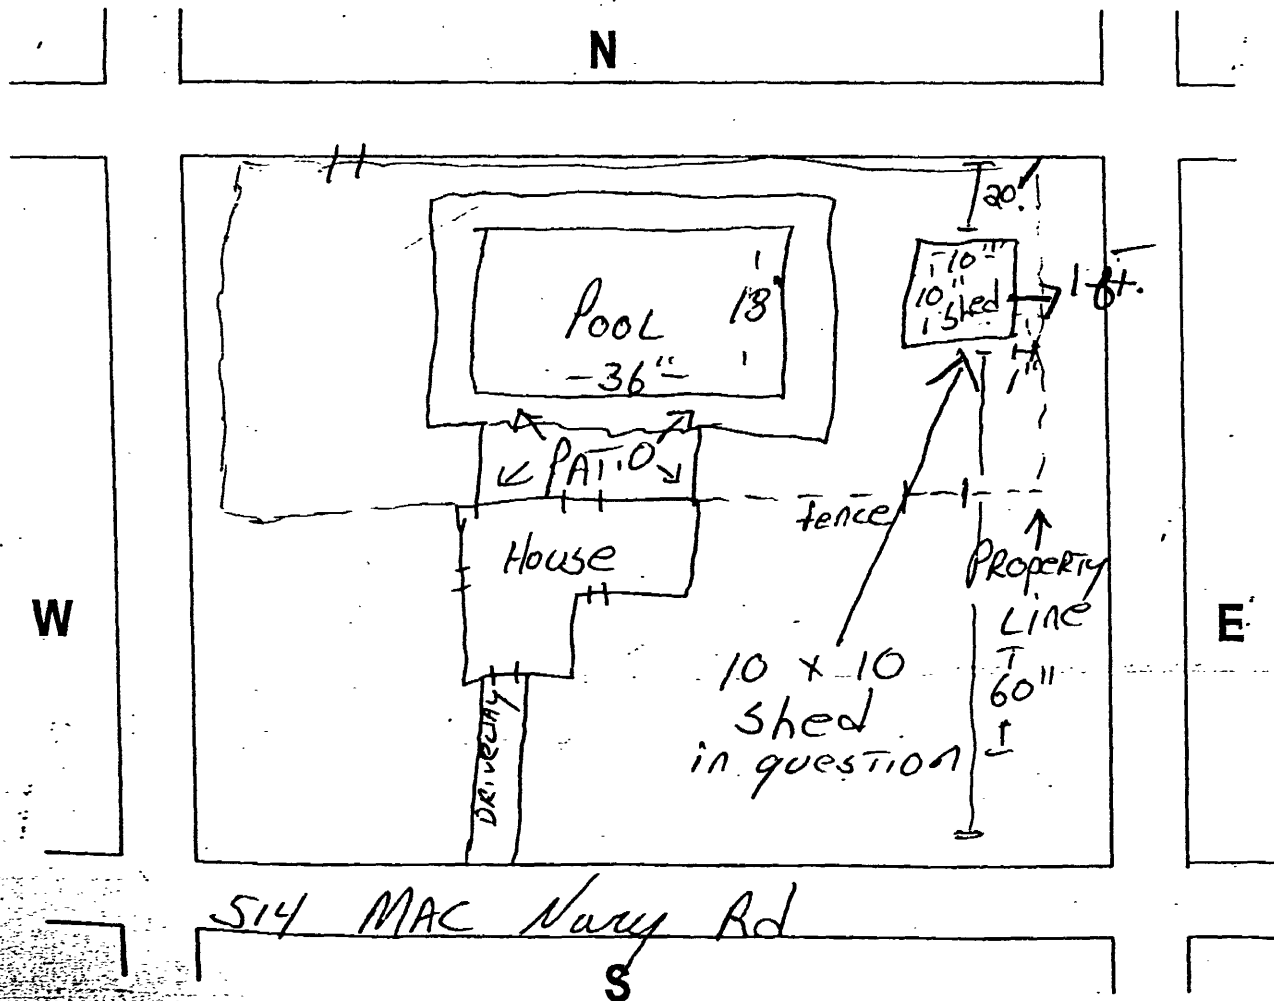 N
20'
-10"
10"
Shed
1 ft.
1"
POOL
18"
-36"-
PATIO
fence
House
PROPERTY
LINE
60"
W
E
10 x 10
Shed
in question
DRIVEWAY
514 MAC Nary Rd
S